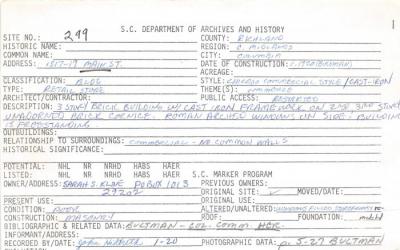 S.C. DEPARTMENT OF ARCHIVES AND HISTORY
SITE NO.: 299 COUNTY: RICHLAND
HISTORIC NAME: REGION: C. MIDLANDS
COMMON NAME: CITY: COLUMBIA
ADDRESS: 1517-19 MAIN ST. DATE OF CONSTRUCTION:
ACREAGE:
CLASSIFICATION: BLDG STYLE: CHICAGO COMMERCIAL STYLE / CAST-IRON
TYPE: RETAIL STORE THEME(S): COMMERCE
ARCHITECT/CONTRACTOR: PUBLIC ACCESS: RESTRICTED
DESCRIPTION: 3 STORY BRICK BUILDING W/ CAST IRON FRAMEWORK ON 2ND 3RD STORY
UNADORNED BRICK CORNICE. ROMAN ARCHED WINDOWS ON SIDE. BUILDING
IS FREESTANDING
OUTBUILDINGS:
RELATIONSHIP TO SURROUNDINGS: COMMERCIAL - NO COMMON WALLS
HISTORICAL SIGNIFICANCE:
POTENTIAL: NHL NR NRHD HABS HAER
LISTED: NHL NR NRHD HABS HAER S.C. MARKER PROGRAM
OWNER/ADDRESS: SARAH S. KLINE PO BOX 1013 PREVIOUS OWNERS:
29202 ORIGINAL SITE: MOVED/DATE:
PRESENT USE: ORIGINAL USE:
CONDITION: ALTERED/UNALTERED:
CONSTRUCTION: MASONRY ROOF: FOUNDATION:
BIBLIOGRAPHIC & RELATED DATA: BULTMAN - COL. COMM. HCR
INFORMANT/ADDRESS:
RECORDED BY/DATE: John 1-20 PHOTOGRAPHIC DATA: 5-27 BULTMAN